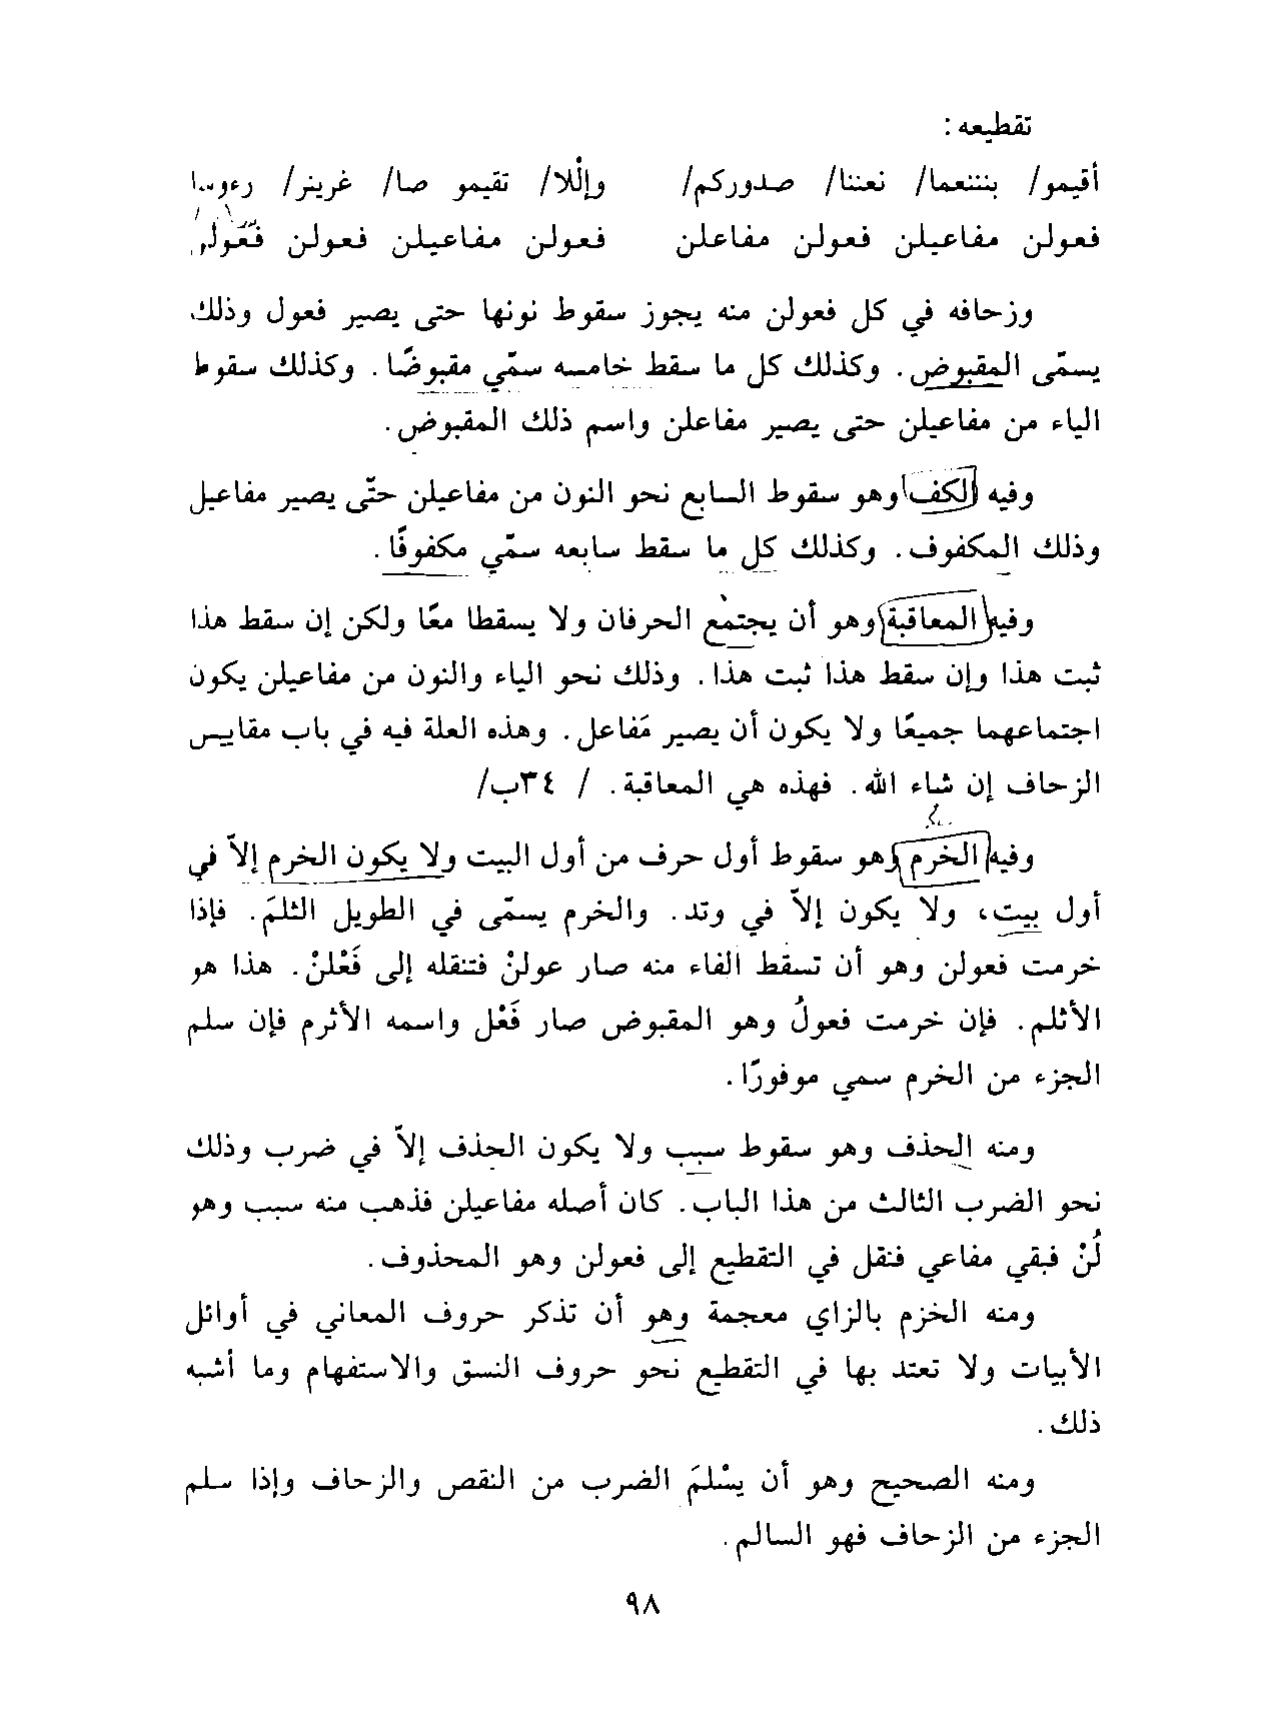 تقطيعه :
أقيمو/ بننعما/ نعننا/ صدوركم/ وإلْلا/ تقيمو صا/ غرينر/ رءوسا
فعولن مفاعيلن فعولن مفاعلن فعولن مفاعيلن فعولن فَعُولن
وزحافه في كل فعولن منه يجوز سقوط نونها حتى يصير فعول وذلك
يسمّى المقبوض . وكذلك كل ما سقط خامسه سمّي مقبوضًا . وكذلك سقوط
الياء من مفاعيلن حتى يصير مفاعلن واسم ذلك المقبوض .
وفيه الكف وهو سقوط السابع نحو النون من مفاعيلن حتّى يصير مفاعيل
وذلك المكفوف . وكذلك كل ما سقط سابعه سمّي مكفوفًا .
وفيه المعاقبة وهو أن يجتمع الحرفان ولا يسقطا معًا ولكن إن سقط هذا
ثبت هذا وإن سقط هذا ثبت هذا . وذلك نحو الياء والنون من مفاعيلن يكون
اجتماعهما جميعًا ولا يكون أن يصير مَفاعل . وهذه العلة فيه في باب مقاييس
الزحاف إن شاء الله . فهذه هي المعاقبة . / ٣٤ب/
وفيه الخرم وهو سقوط أول حرف من أول البيت ولا يكون الخرم إلاّ في
أول بيت، ولا يكون إلاّ في وتد . والخرم يسمّى في الطويل الثلمَ . فإذا
خرمت فعولن وهو أن تسقط الفاء منه صار عولنْ فتنقله إلى فَعْلنْ . هذا هو
الأثلم . فإن خرمت فعولُ وهو المقبوض صار فَعْل واسمه الأثرم فإن سلم
الجزء من الخرم سمي موفورًا .
ومنه الحذف وهو سقوط سبب ولا يكون الحذف إلاّ في ضرب وذلك
نحو الضرب الثالث من هذا الباب . كان أصله مفاعيلن فذهب منه سبب وهو
لُنْ فبقي مفاعي فنقل في التقطيع إلى فعولن وهو المحذوف .
ومنه الخزم بالزاي معجمة وهو أن تذكر حروف المعاني في أوائل
الأبيات ولا تعتد بها في التقطيع نحو حروف النسق والاستفهام وما أشبه
ذلك .
ومنه الصحيح وهو أن يسْلمَ الضرب من النقص والزحاف وإذا سلم
الجزء من الزحاف فهو السالم .
٩٨